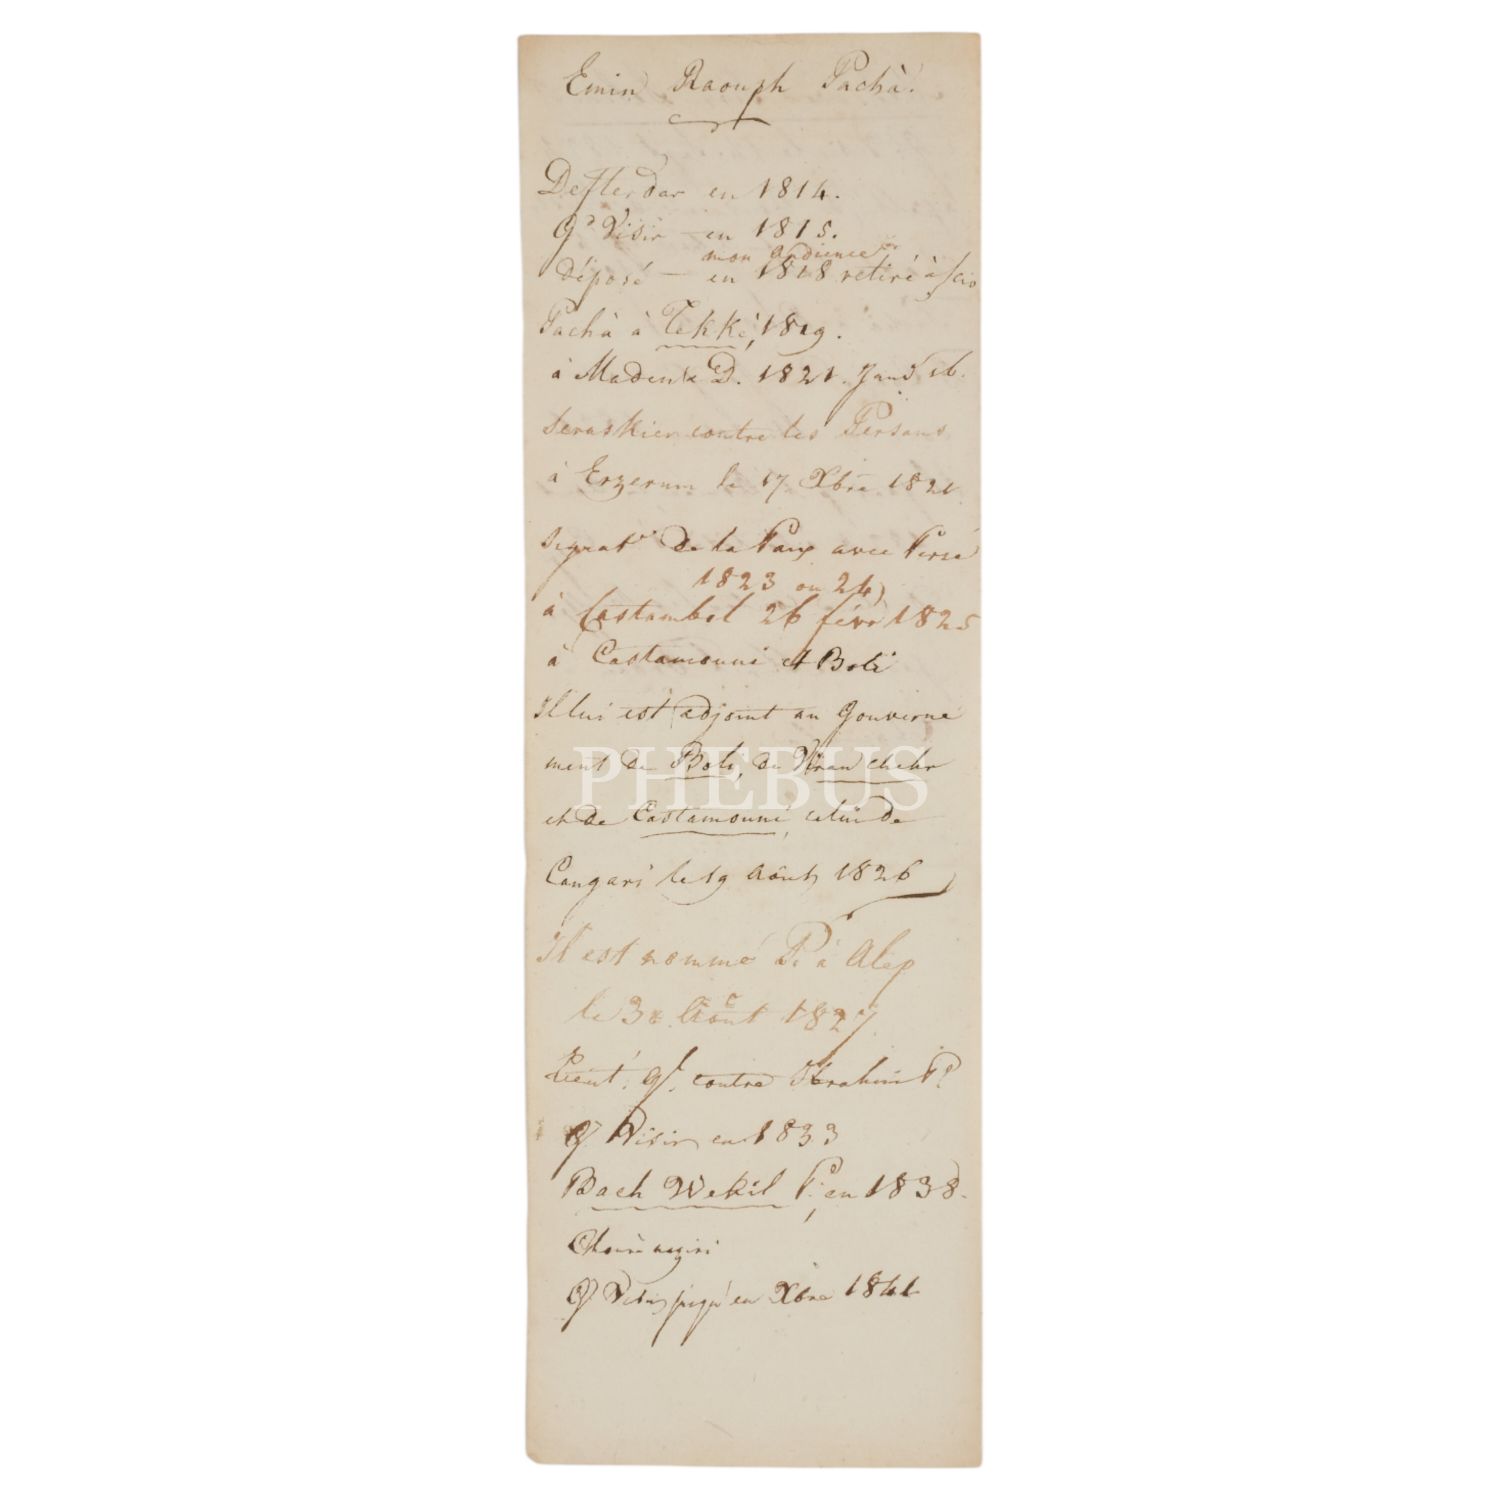 Emin Raouph Pachà.
Defterdar en 1814.
Gd Visir — en 1815.
mon audience
déposé — en 1818 retiré à Scio
Pachà à Tekké, 1819.
à Maden 1821. Janv 16.
Seraskier contre les Persans
à Erzerum le 17 Xbre 1821
signatre de la Paix avec Perse
1823 ou 24)
à Costambol 26 févr 1825
à Castamouni et Boli
Il lui est adjoint au Gouverne
ment de Boli, de Viranchehr
PHEBUS
et de Castamouni, celui de
Cangari le 19 Août 1826
Il est nommé P. à Alep
le 3 Août 1827
Lieut. gl. contre Ibrahim P.
Gd Visir en 1833
Bach Wekil P. en 1838.
Gd Visir jusqu'en Xbre 1841